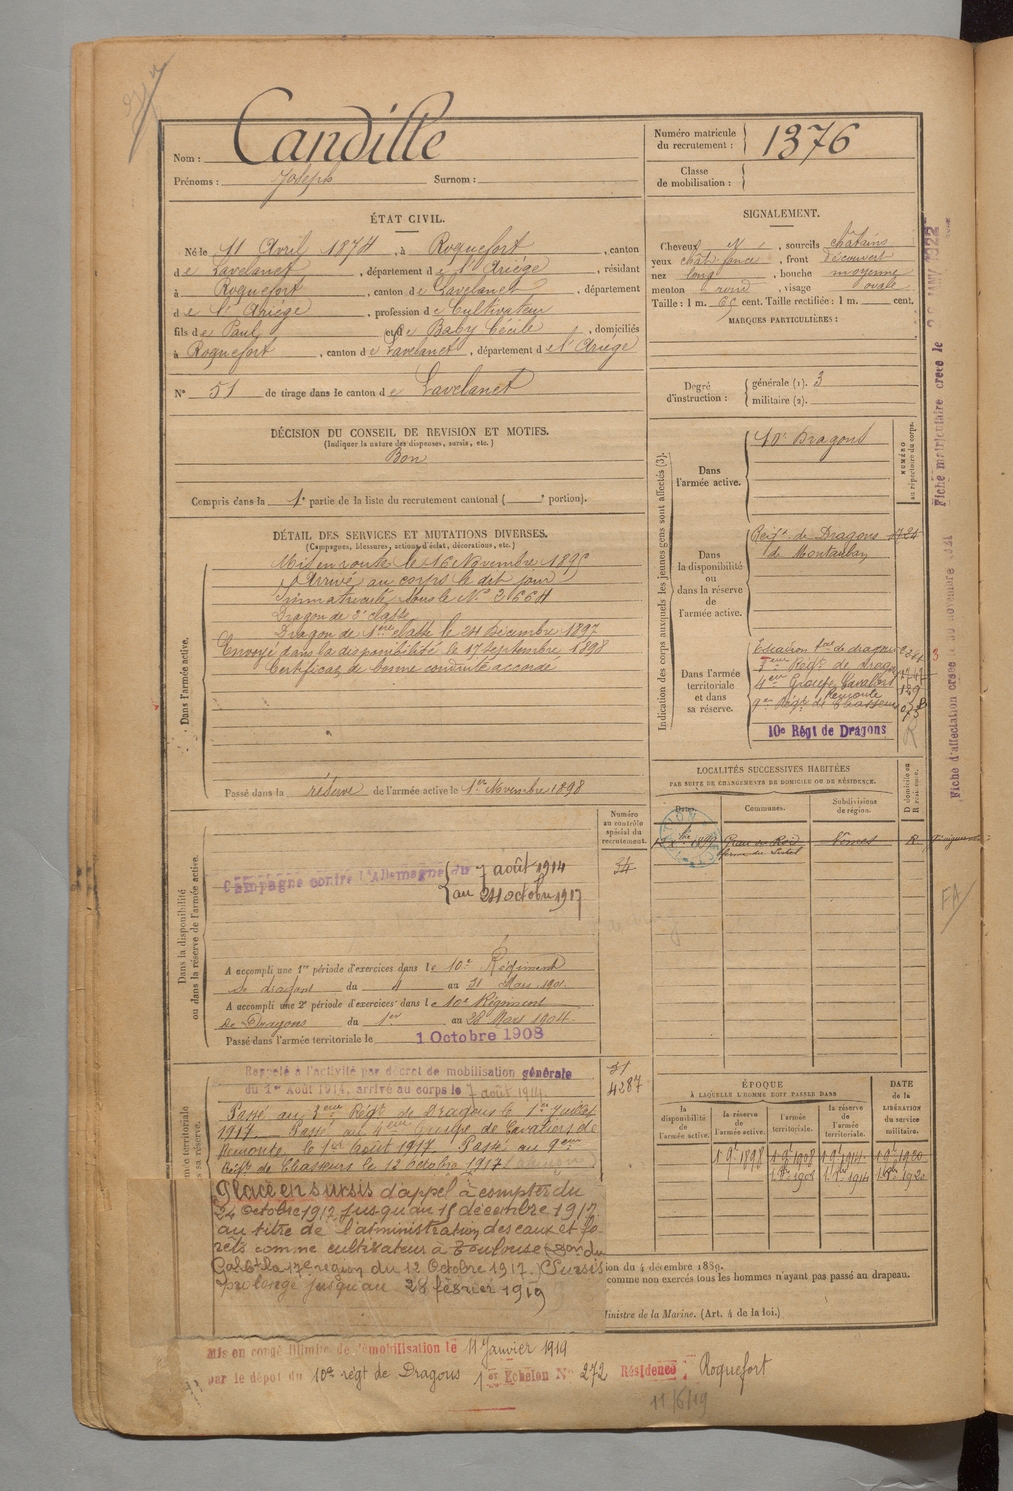 Nom : Candille
Numéro matricule du recrutement : 1376
Prénoms : Joseph Surnom :
Classe de mobilisation :
ÉTAT CIVIL.
Né le 11 Avril 1874, à Roquefort, canton
de Lavelanet, département de l'Ariége, résidant
à Roquefort, canton de Lavelanet, département
de l'Ariége, profession de Cultivateur
fils de Paul et de Baby Cécile, domiciliés
à Roquefort, canton de Lavelanet, département de l'Ariége
N° 51 de tirage dans le canton de Lavelanet
SIGNALEMENT.
Cheveux N, sourcils châtains
yeux chât foncé, front découvert
nez long, bouche moyenne
menton rond, visage ovale
Taille : 1 m. 65 cent. Taille rectifiée : 1 m. cent.
MARQUES PARTICULIÈRES :
Degré d'instruction : générale (1). 3
militaire (2).
DÉCISION DU CONSEIL DE REVISION ET MOTIFS.
(Indiquer la nature des dispenses, sursis, etc.)
Bon
Compris dans la 1e partie de la liste du recrutement cantonal ( e portion).
DÉTAIL DES SERVICES ET MUTATIONS DIVERSES.
(Campagnes, blessures, actions d'éclat, décorations, etc.)
Dans l'armée active.
Mis en route le 16 Novembre 1895
Arrivé au corps le dit jour
Immatriculé sous le N° 3664
Dragon de 2e classe
Dragon de 1ère classe le 24 Décembre 1897
Envoyé dans la disponibilité le 17 Septembre 1898
Certificat de bonne conduite accordé
Passé dans la réserve de l'armée active le 1er Novembre 1898
Indication des corps auxquels les jeunes gens sont affectés (3).
NUMÉRO au répertoire du corps.
Dans l'armée active.
10e Dragons
Dans la disponibilité ou dans la réserve de l'armée active.
Régt de Dragons 1724
de Montauban
Dans l'armée territoriale et dans sa réserve.
de dragons
3eme Régt de Dragons
4eme Groupe Cavaliers Remonte
9e Régt de Chasseurs
10e Régt de Dragons
LOCALITÉS SUCCESSIVES HABITÉES
PAR SUITE DE CHANGEMENTS DE DOMICILE OU DE RÉSIDENCE.
Dates. Communes. Subdivisions de région. D domicile ou R résidence.
Nîmes R
Dans la disponibilité ou dans la réserve de l'armée active.
Numéro au contrôle spécial du recrutement.
34
Campagne contre l'Allemagne du 7 août 1914
au 24 octobre 1917
A accompli une 1re période d'exercices dans le 10e Régiment
de dragons du 4 au 31 Mars 1901
A accompli une 2e période d'exercices dans le 10e Régiment
de Dragons du 1er au 28 Mars 1904
Passé dans l'armée territoriale le 1 Octobre 1908
31
4287
Rappelé à l'activité par décret de mobilisation générale
du 1er Août 1914, arrivé au corps le 7 août 1914.
Passé au 3eme Régt de Dragons le 1er Juillet
1917. Passé au 4eme Groupe de Cavaliers de
Remonte le 1er Août 1917. Passé au 9eme
Régt de Chasseurs le 12 octobre 1917
Placé en sursis d'appel à compter du
24 octobre 1917 jusqu'au 15 décembre 1917
au titre de l'administration des eaux et fo-
rêts comme cultivateur à Toulouse
la 17e région du 12 Octobre 1917. Sursis
prolongé jusqu'au 28 février 1919
ÉPOQUE
À LAQUELLE L'HOMME DOIT PASSER DANS
la disponibilité de l'armée active. la réserve de l'armée active. l'armée territoriale. la réserve de l'armée territoriale.
DATE de la LIBÉRATION du service militaire.
1 9e 1898 1 9e 1908 1 9e 1914 1 9e 1920
1908 1914 1920
ion du 4 décembre 1889.
comme non exercés tous les hommes n'ayant pas passé au drapeau.
Ministre de la Marine. (Art. 4 de la loi.)
Mis en congé illimité de démobilisation le 11 Janvier 1919
par le dépot du 10e régt de Dragons 1er Echelon N° 272 Résidence : Roquefort
11/6/19
Fiche matriculaire créée le JANV 1922
Fiche d'affectation créée le novembre
FA